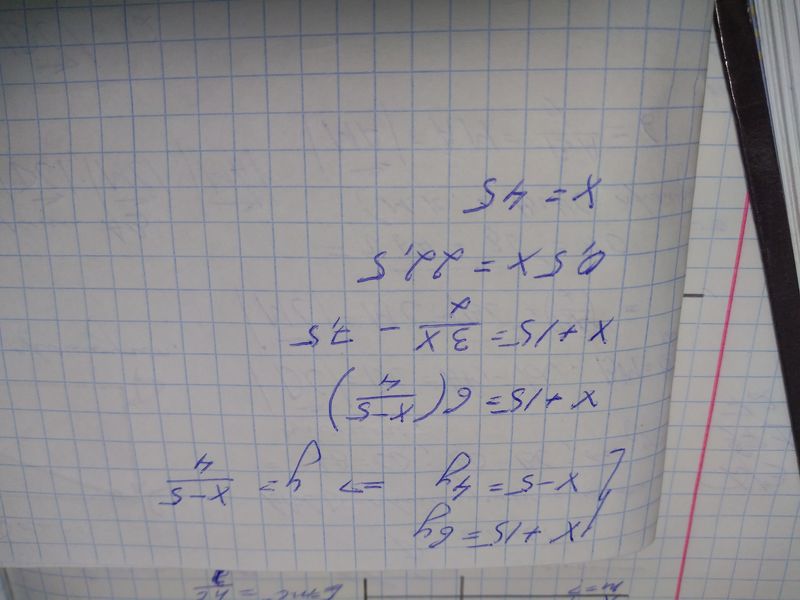 { x + 15 = 6y
x - 5 = 4y => y = \frac{x-5}{4}
x + 15 = 6(\frac{x-5}{4})
x + 15 = \frac{3x}{2} - 7,5
0,5x = 22,5
x = 45